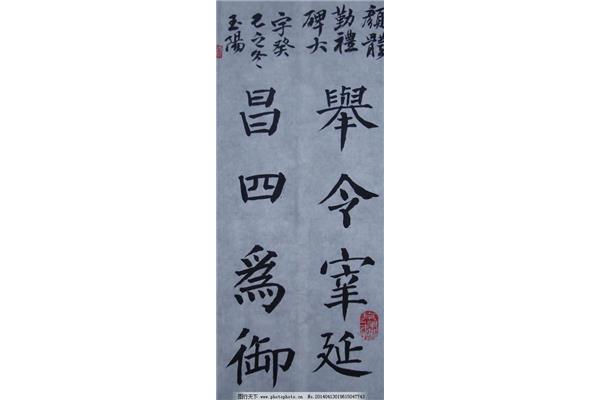 顏體
勤禮
碑大
字癸
巳之冬
玉陽
舉令宰延
昌四爲御
图行天下 www.photophoto.cn No.20140413019615047743